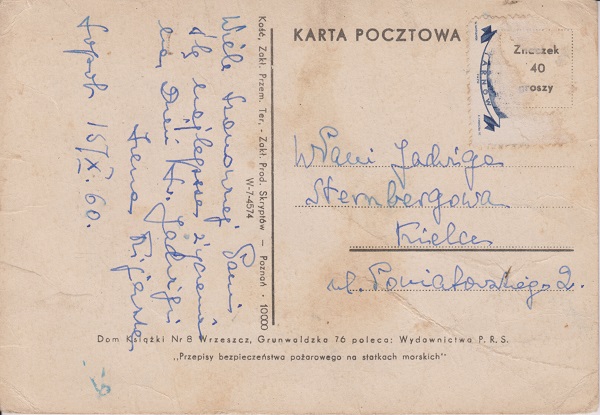 KARTA POCZTOWA
Znaczek
40
groszy
TARNOWO
WPani Jadwiga
Sternbergowa
Kielce
ul. Poniatowskiego 2.
Wiele Szanownej Pani
ślę najlepsze życzenia
na Dzień Św. Jadwigi
Irena
Sopot 15/X. 60.
Kość. Zakł. Przem. Ter. - Zakł. Prod. Skryptów — Poznań · 10000
W-7-4574
Dom Książki Nr 8 Wrzeszcz, Grunwaldzka 76 poleca: Wydawnictwa P.R.S.
„Przepisy bezpieczeństwa pożarowego na statkach morskich"